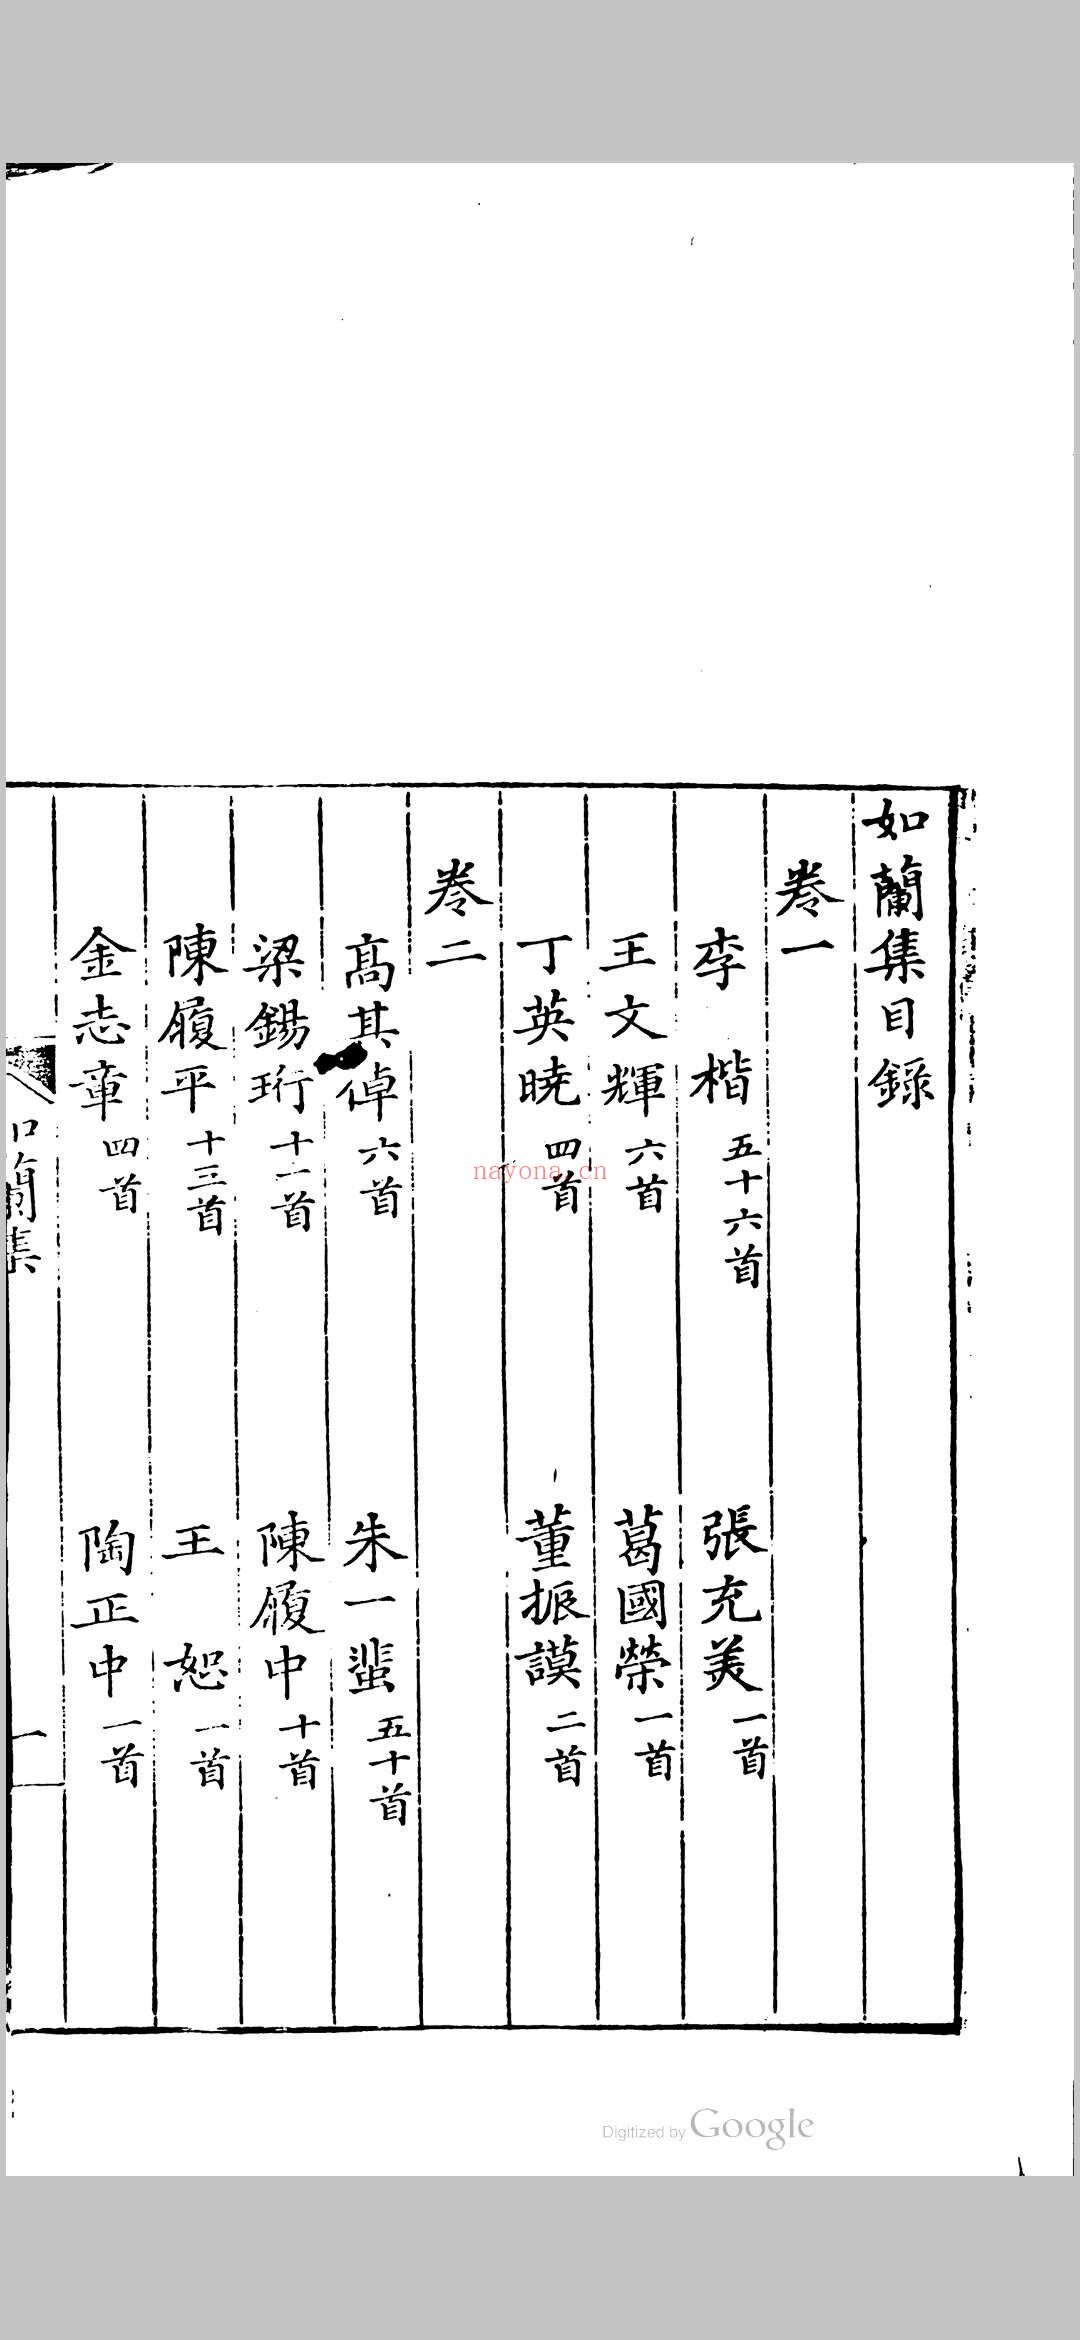 如蘭集目錄
卷一
李 楷 五十六首 張充美 一首
王文輝 六首 葛國榮 一首
丁英曉 四首 董振謨 二首
卷二
高其倬 六首 朱一蜚 五十首
梁錫珩 十一首 陳履中 十首
陳履平 十三首 王 恕 一首
金志章 四首 陶正中 一首
如蘭集
一
nayona.cn
Digitized by Google